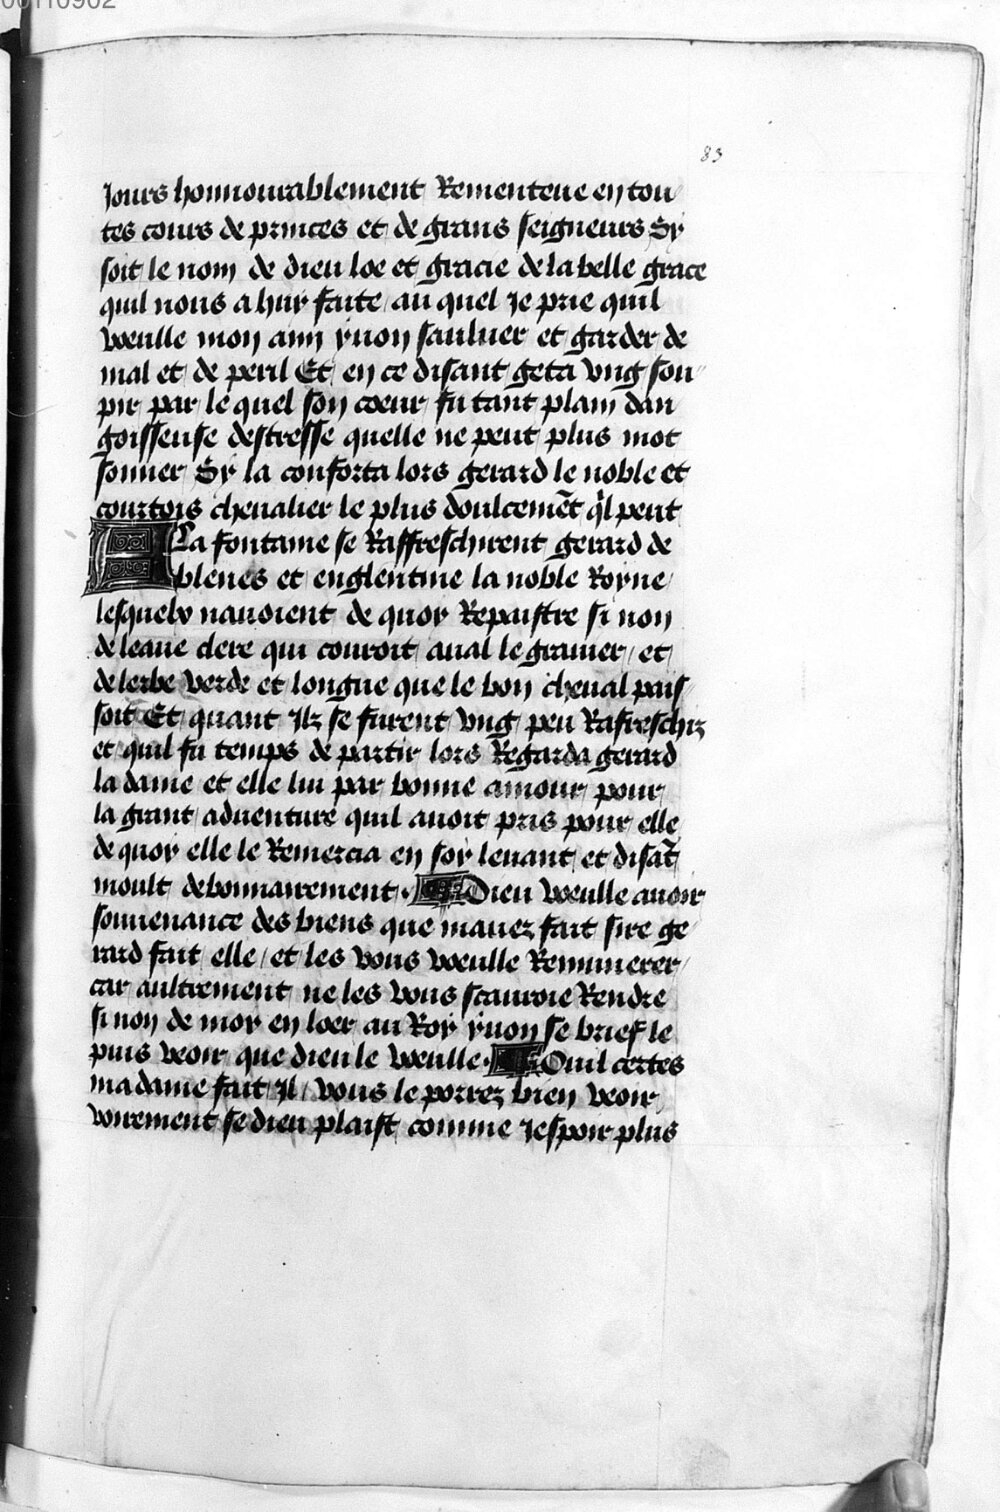 00110902
83
Jours honnourablement Rementeue en tou
tes cours de princes et de grans seigneurs Sy
soit le nom de dieu loe et gracie de la belle grace
quil nous a huy faite / au quel Je prie quil
voeulle mon amy yuon sauluer et garder de
mal et de peril Et en ce disant geta vng sou
pir par le quel son coeur fu tant plain dan
goisseuse destresse quelle ne peut plus mot
sonner Sy la conforta lors gerard le noble et
courtois cheualier le plus doulcemẽt ql̃ peut
A La fontaine se Raffreschirent gerard de
bleues et englentine la noble Royne
lesquelx nauoient de quoy Repaistre si non
de leaue clere qui couroit aual le grauier / et
de lerbe verde et longue que le bon cheual pais
soit Et quant Ilz se furent vng peu Rafreschiz
et quil fu temps de partir lors Regarda gerard
la dame et elle lui par bonne amour pour
la grant aduenture quil auoit pris pour elle
de quoy elle le Remercia en soy leuant et disãt
moult debonnairement. Dieu voeulle auoir
souuenance des biens que mauez fait sire ge
rard fait elle / et les vous voeulle Remunerer /
car aultrement ne les vous scauroie Rendre
si non de moy en loer au Roy yuon se brief le
puis veoir que dieu le voeulle. Ouil certes
ma dame fait Il / vous le porrez bien veoir
voirement se dieu plaist comme Jespoir plus